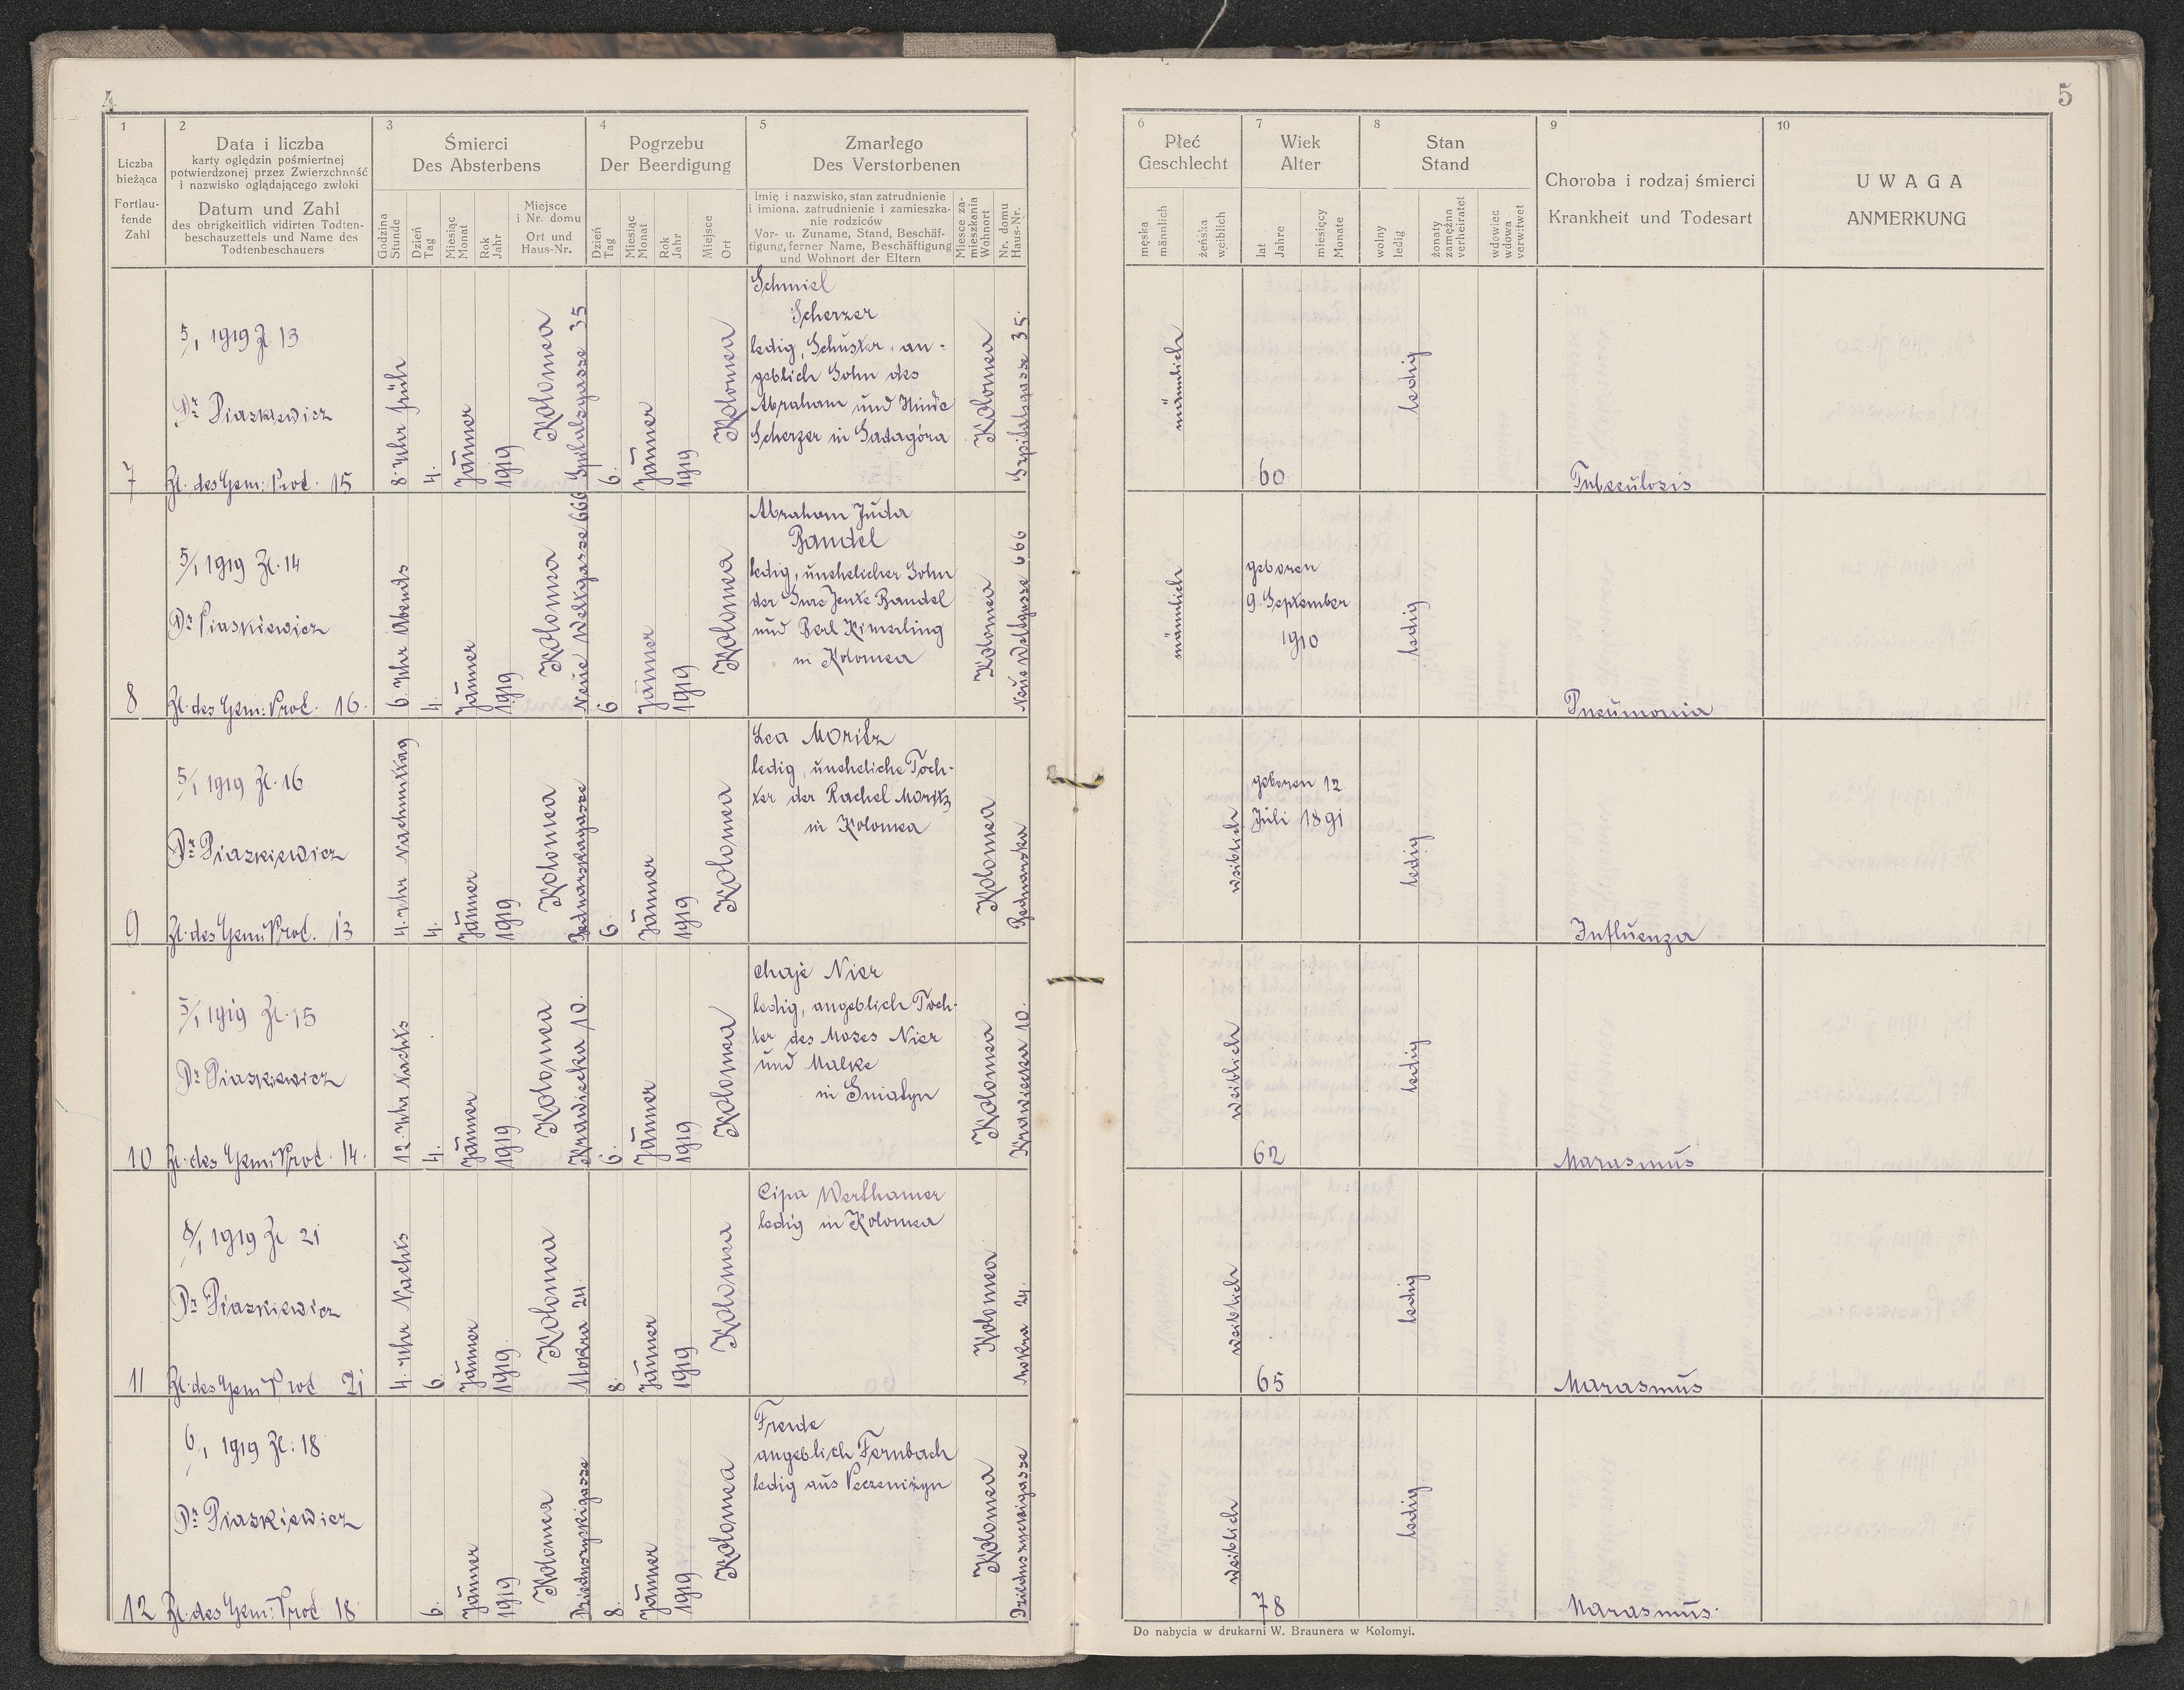 4
5
1
Liczba
bieżąca
Fortlau-
fende
Zahl
2
Data i liczba
karty oględzin pośmiertnej
potwierdzonej przez Zwierzchność
i nazwisko oglądającego zwłoki
Datum und Zahl
des obrigkeitlich vidirten Todten-
beschauzettels und Name des
Todtenbeschauers
3
Śmierci
Des Absterbens
Godzina
Stunde
Dzień
Tag
Miesiąc
Monat
Rok
Jahr
Miejsce
i Nr. domu
Ort und
Haus-Nr.
4
Pogrzebu
Der Beerdigung
Dzień
Tag
Miesiąc
Monat
Rok
Jahr
Miejsce
Ort
5
Zmarłego
Des Verstorbenen
Imię i nazwisko, stan zatrudnienie
i imiona, zatrudnienie i zamieszka-
nie rodziców
Vor- u. Zuname, Stand, Beschäf-
tigung, ferner Name, Beschäftigung
und Wohnort der Eltern
Miesce za-
mieszkania
Wohnort
Nr. domu
Haus-Nr.
6
Płeć
Geschlecht
męska
männlich
żeńska
weiblich
7
Wiek
Alter
lat
Jahre
miesięcy
Monate
8
Stan
Stand
wolny
ledig
żonaty
zamężna
verheiratet
wdowiec
wdowa
verwitwet
9
Choroba i rodzaj śmierci
Krankheit und Todesart
10
UWAGA
ANMERKUNG
7
5/1 1919 Zl. 13
Dr Piaskiewicz
Zl. des Gem: Prot. 15
8 Uhr früh
4.
Jänner
1919
Kolomea
Spitalsgasse 35
6.
Jänner
1919
Kolomea
Schmiel
Scherzer
ledig, Schuster, an-
geblich Sohn des
Abraham und Hinde
Scherzer in Sadagóra
Kolomea
Szpitalsgasse 35.
männlich
60
ledig
Tuberculosis
8
5/1 1919 Zl. 14
Dr Piaskiewicz
Zl. des Gem: Prot. 16.
6 Uhr Abends
4.
Jänner
1919
Kolomea
Neue Weltgasse 666
6
Jänner
1919
Kolomea
Abraham Juda
Bandel
ledig, unehelicher Sohn
der Sure Jente Bandel
und Berl Kimerling
in Kolomea
Kolomea
Neue Weltgasse 666
männlich
geboren
9. September
1910
ledig
Pneumonia
9
5/1 1919 Zl. 16
Dr Piaskiewicz
Zl. des Gem: Prot. 13
4. Uhr Nachmittag
4.
Jänner
1919
Kolomea
Bednarskagasse
6.
Jänner
1919
Kolomea
Lea Moritz
ledig, uneheliche Toch-
ter der Rachel Moritz
in Kolomea
Kolomea
Bednarska
weiblich
geboren 12
Juli 1891
ledig
Influenza
10
5/1 1919 Zl. 15
Dr Piaskiewicz
Zl. des Gem: Prot. 14.
12. Uhr Nachts
4.
Jänner
1919
Kolomea
Krawiecka 10.
6.
Jänner
1919
Kolomea
Chaje Nier
ledig, angeblich Toch-
ter des Moses Nier
und Malke
in Sniatyn
Kolomea
Krawiecka 10.
weiblich
62
ledig
Marasmus
11
8/1 1919 Zl 21
Dr Piaskiewicz
Zl. des Gem: Prot 21
4. Uhr Nachts
6.
Jänner
1919
Kolomea
Mokra 24.
8.
Jänner
1919
Kolomea
Cipa Werthamer
ledig in Kolomea
Kolomea
Mokra 24.
weiblich
65
ledig
Marasmus
12
6/1 1919 Zl: 18
Dr Piaskiewicz
Zl. des Gem: Prot 18
6.
Jänner
1919
Kolomea
Dzieduszyckigasse
8.
Jänner
1919
Kolomea
Freide
angeblich Fernbach
ledig aus Peczeniżyn
Kolomea
weiblich
78
ledig
Marasmus.
Do nabycia w drukarni W. Braunera w Kołomyi.